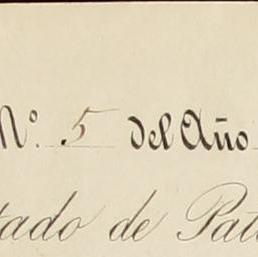 Nº. 5 del Año
tado de Pat